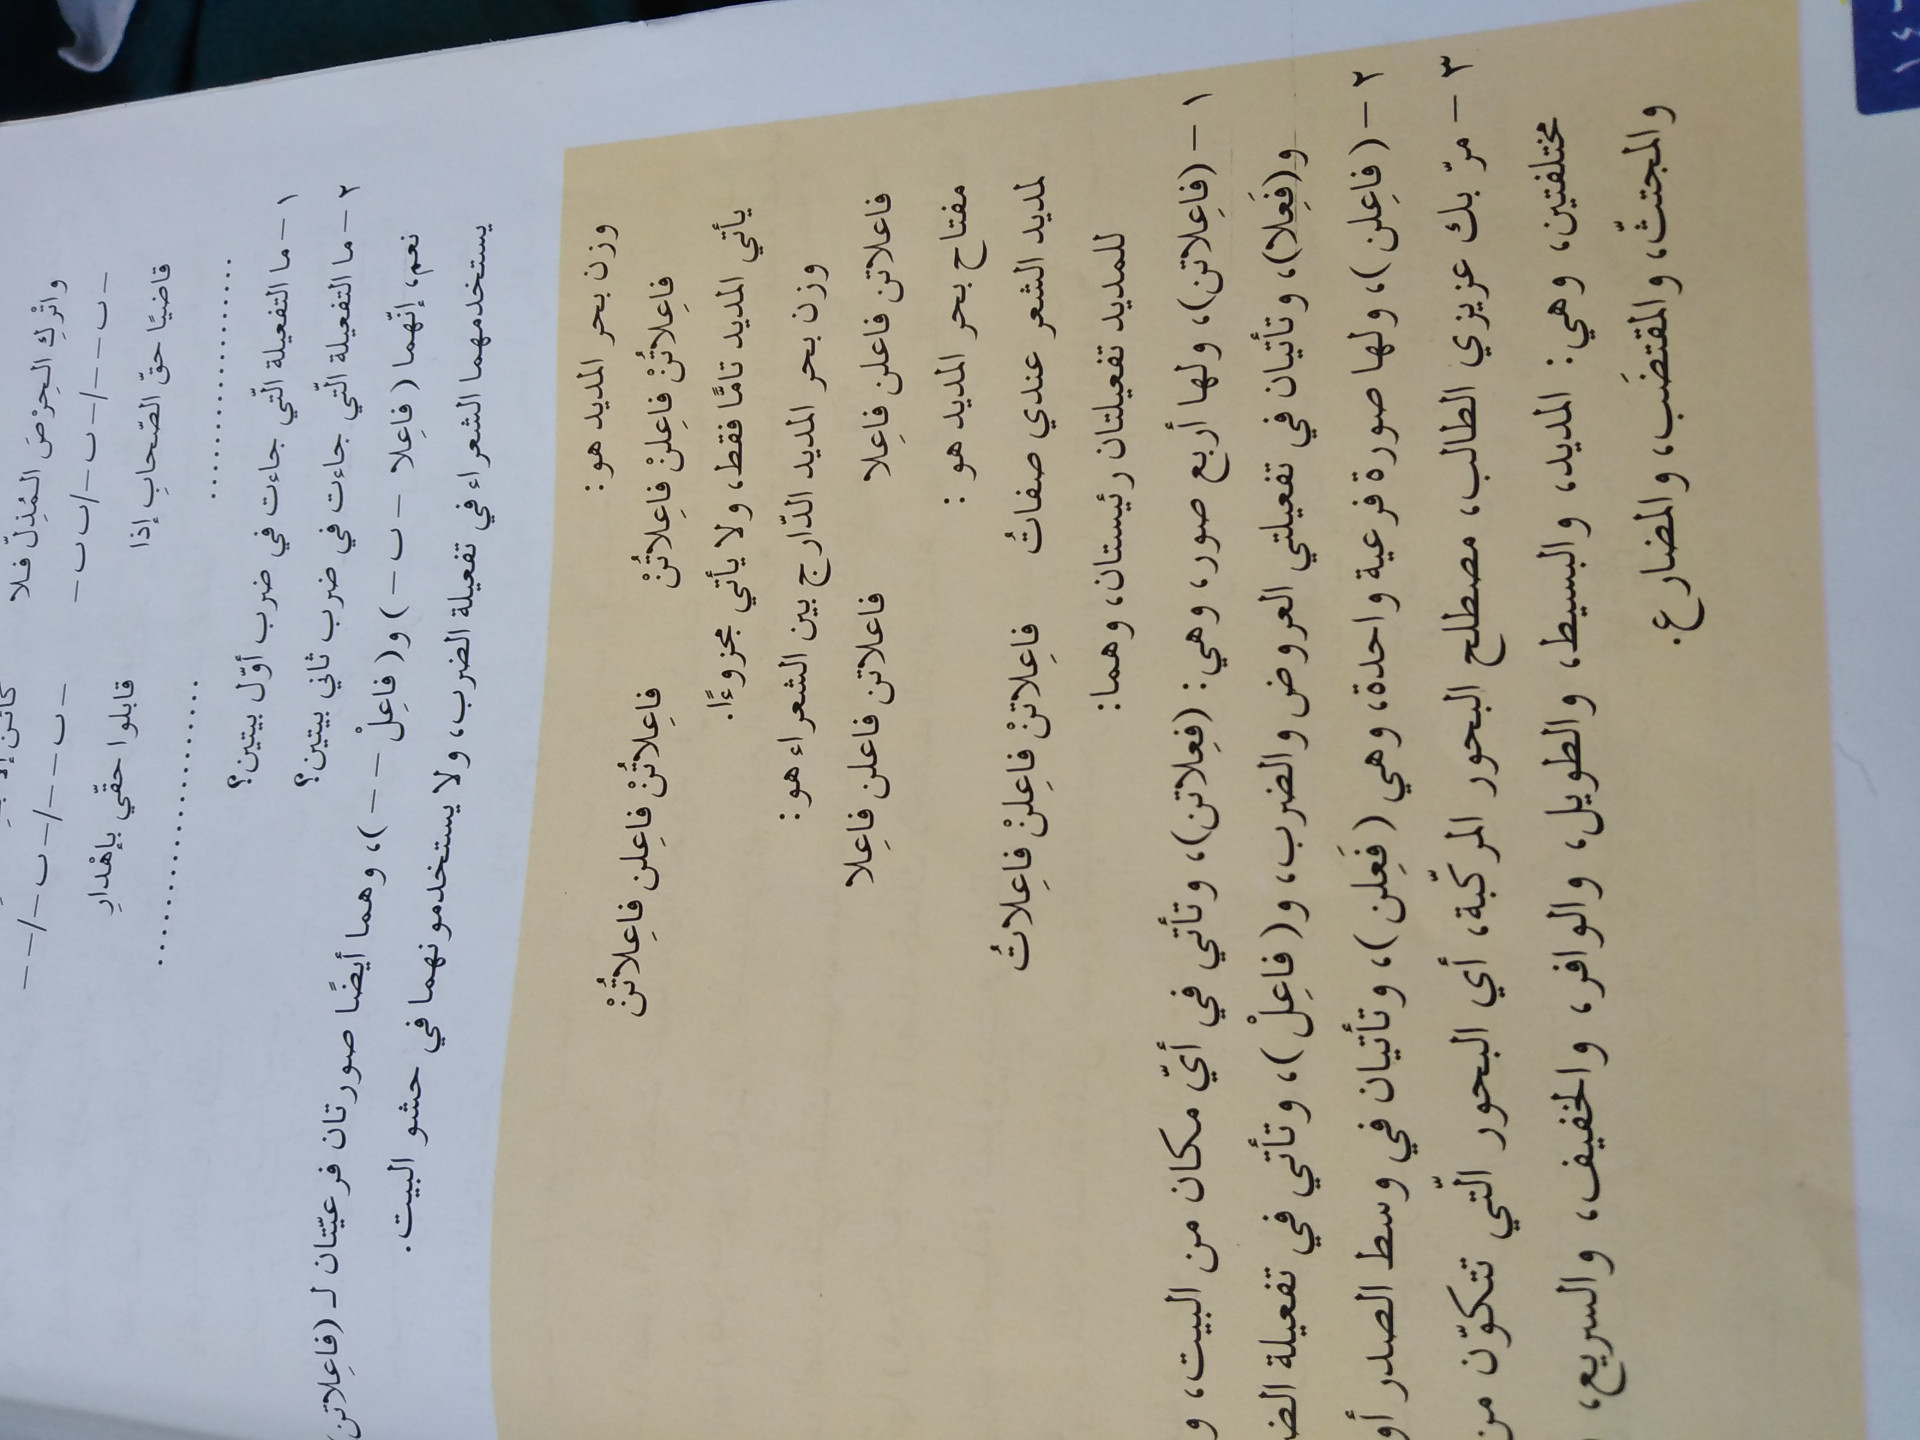 واتْركِ الحِرْصَ المُذِلّ فلا
– ب – – / – ب – / ب ب –
– ب – – / – ب – / – –
قاضيًا حقّ الصّحابِ إذا قابلوا حقّي بإهْدارِ
........................ ........................
١ – ما التفعيلة الّتي جاءت في ضرب أوّل بيتين؟
٢ – ما التفعيلة الّتي جاءت في ضرب ثاني بيتين؟
نعم، إنّهما (فاعِلا – ب –) و(فاعِلْ – –)، وهما أيضًا صورتان فرعيّتان لـ (فاعِلاتن
يستخدمهما الشعراء في تفعيلة الضرب، ولا يستخدمونهما في حشو البيت.
وزن بحر المديد هو:
فاعِلاتُنْ فاعِلنْ فاعِلاتُنْ فاعِلاتُنْ فاعِلن فاعِلاتُنْ
يأتي المديد تامًّا فقط، ولا يأتي مجزوءًا.
وزن بحر المديد الدّارج بين الشعراء هو:
فاعلاتن فاعلن فاعِلا فاعلاتن فاعلن فاعِلا
مفتاح بحر المديد هو :
لمديد الشعر عندي صفاتُ فاعِلاتنْ فاعِلنْ فاعِلاتُ
للمديد تفعيلتان رئيستان، وهما:
١ – (فاعِلاتن)، ولها أربع صور، وهي: (فِعِلاتن)، وتأتي في أيّ مكان من البيت، و
و(فَعِلا)، وتأتيان في تفعيلتي العروض والضرب، و(فاعِلْ)، وتأتي في تفعيلة
٢ – (فاعِلن)، ولها صورة فرعية واحدة، وهي (فَعِلن)، وتأتيان في وسط الصدر أو
٣ – مرّ بك عزيزي الطالب، مصطلح البحور المركّبة، أي البحور الّتي تتكوّن من
مختلفتين، وهي: المديد، والبسيط، والطويل، والوافر، والخفيف، والسريع،
والمجتثّ، والمقتضَب، والمضارع.